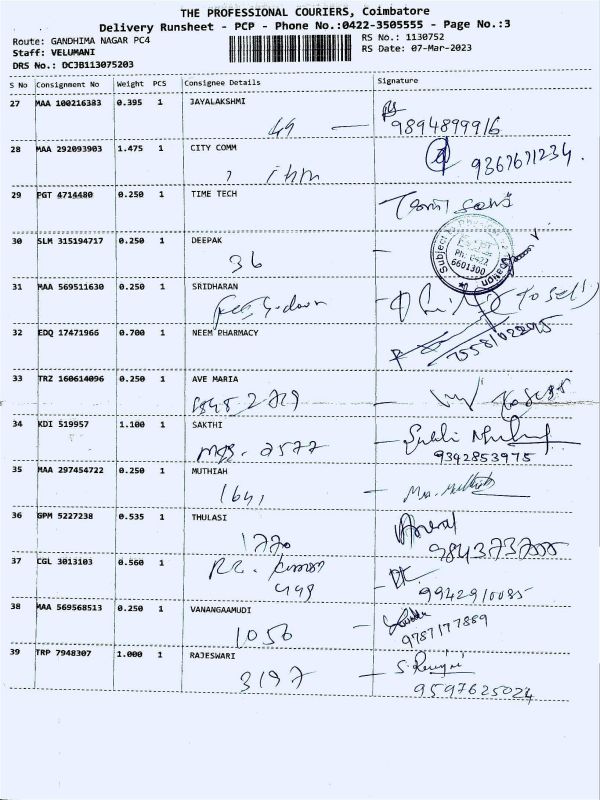 THE PROFESSIONAL COURIERS, Coimbatore
Delivery Runsheet - PCP - Phone No.:0422-3505555 - Page No.:3
Route: GANDHIMA NAGAR PC4
RS No.: 1130752
Staff: VELUMANI
RS Date: 07-Mar-2023
DRS No.: DCJB113075203
S No Consignment No Weight PCS Consignee Details Signature
27 MAA 100216383 0.395 1 JAYALAKSHMI
49 9894899916
28 MAA 292093903 1.475 1 CITY COMM
9367671234.
29 PGT 4714480 0.250 1 TIME TECH
30 SLM 315194717 0.250 1 DEEPAK
36
Ph: 0422
6601300
31 MAA 569511630 0.250 1 SRIDHARAN
32 EDQ 17471966 0.700 1 NEEM PHARMACY
33 TRZ 160614096 0.250 1 AVE MARIA
34 KDI 519957 1.100 1 SAKTHI
2577
9342853975
35 MAA 297454722 0.250 1 MUTHIAH
1641
36 GPM 5227238 0.535 1 THULASI
1770
37 CGL 3013103 0.560 1
9942910085
38 MAA 569568513 0.250 1 VANANGAAMUDI
1056
9787177889
39 TRP 7948307 1.000 1 RAJESWARI
3197
9597625024